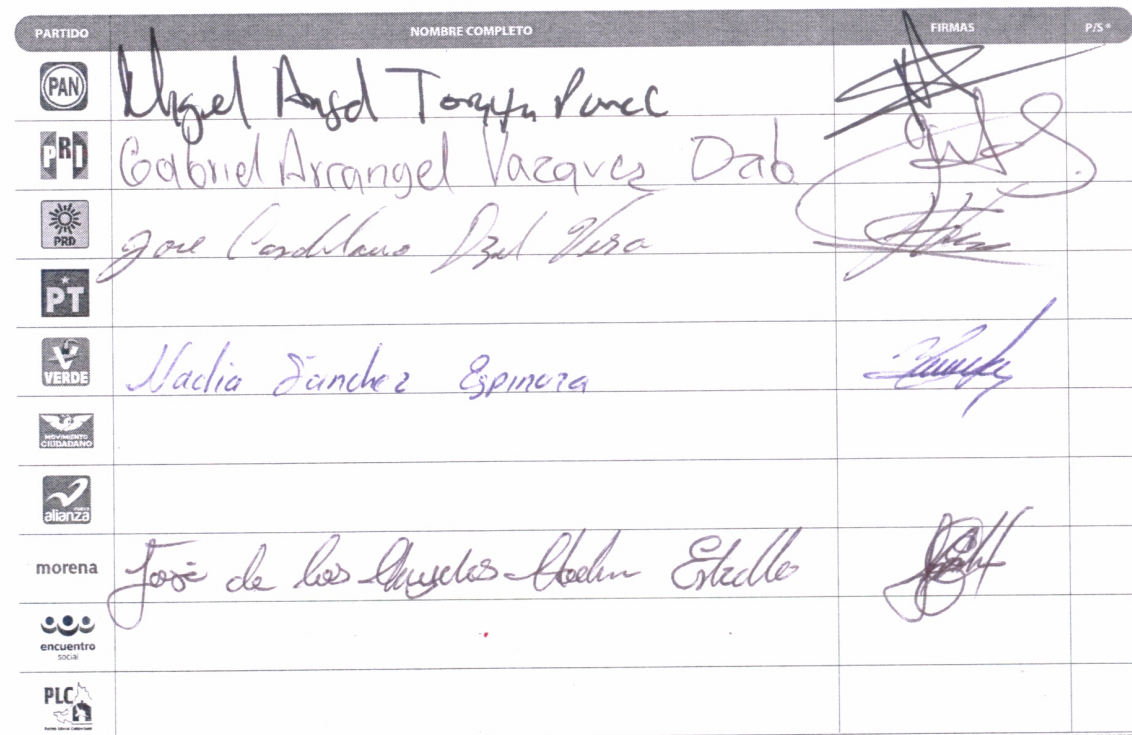 PARTIDO NOMBRE COMPLETO FIRMAS P/S*
PAN Miguel Angel
PRI Gabriel Arcangel Vazquez Dzib
PRD Jose Candelario Dzul Vera
PT
VERDE Nadia Sánchez Espinoza
MOVIMIENTO CIUDADANO
nueva alianza
morena José de los Angeles Estrella
encuentro social
PLC